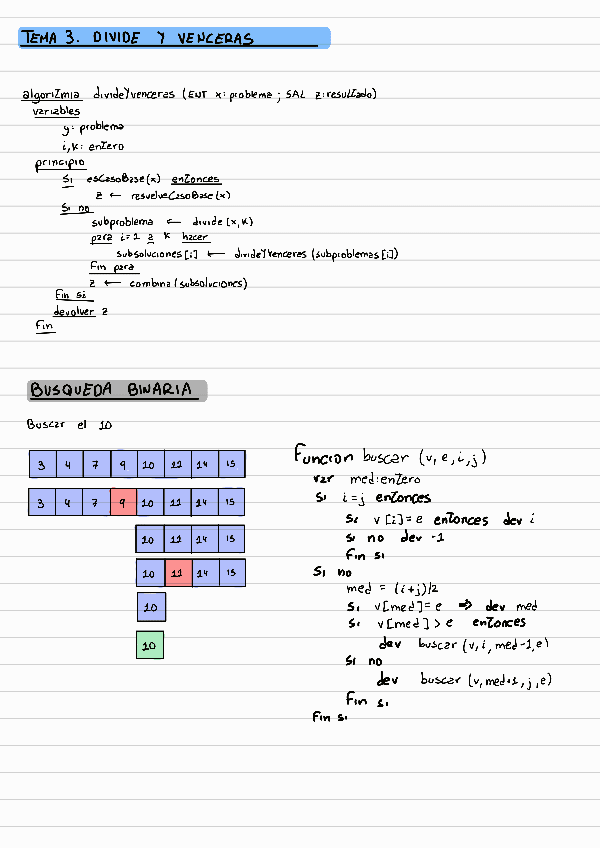 TEMA 3. DIVIDE Y VENCERAS
algoritmia divideYvenceras (ENT x: problema ; SAL z: resultado)
variables
y: problema
i,k: entero
principio
Si esCasoBase(x) entonces
z ← resuelveCasoBase(x)
Si no
subproblema ← divide (x,k)
para i=1 a k hacer
subsoluciones[i] ← divideYvenceras (subproblemas[i])
Fin para
z ← combina (subsoluciones)
Fin si
devolver z
Fin
BUSQUEDA BINARIA
Buscar el 10
3 4 7 9 10 11 14 15
3 4 7 9 10 11 14 15
10 11 14 15
10 11 14 15
10
10
Funcion buscar (v,e,i,j)
var med:entero
Si i=j entonces
Si v[i]=e entonces dev i
si no dev -1
Fin si
Si no
med = (i+j)/2
Si v[med]=e ⇒ dev med
Si v[med]>e entonces
dev buscar (v,i,med-1,e)
Si no
dev buscar (v,med+1,j,e)
Fin si
Fin si